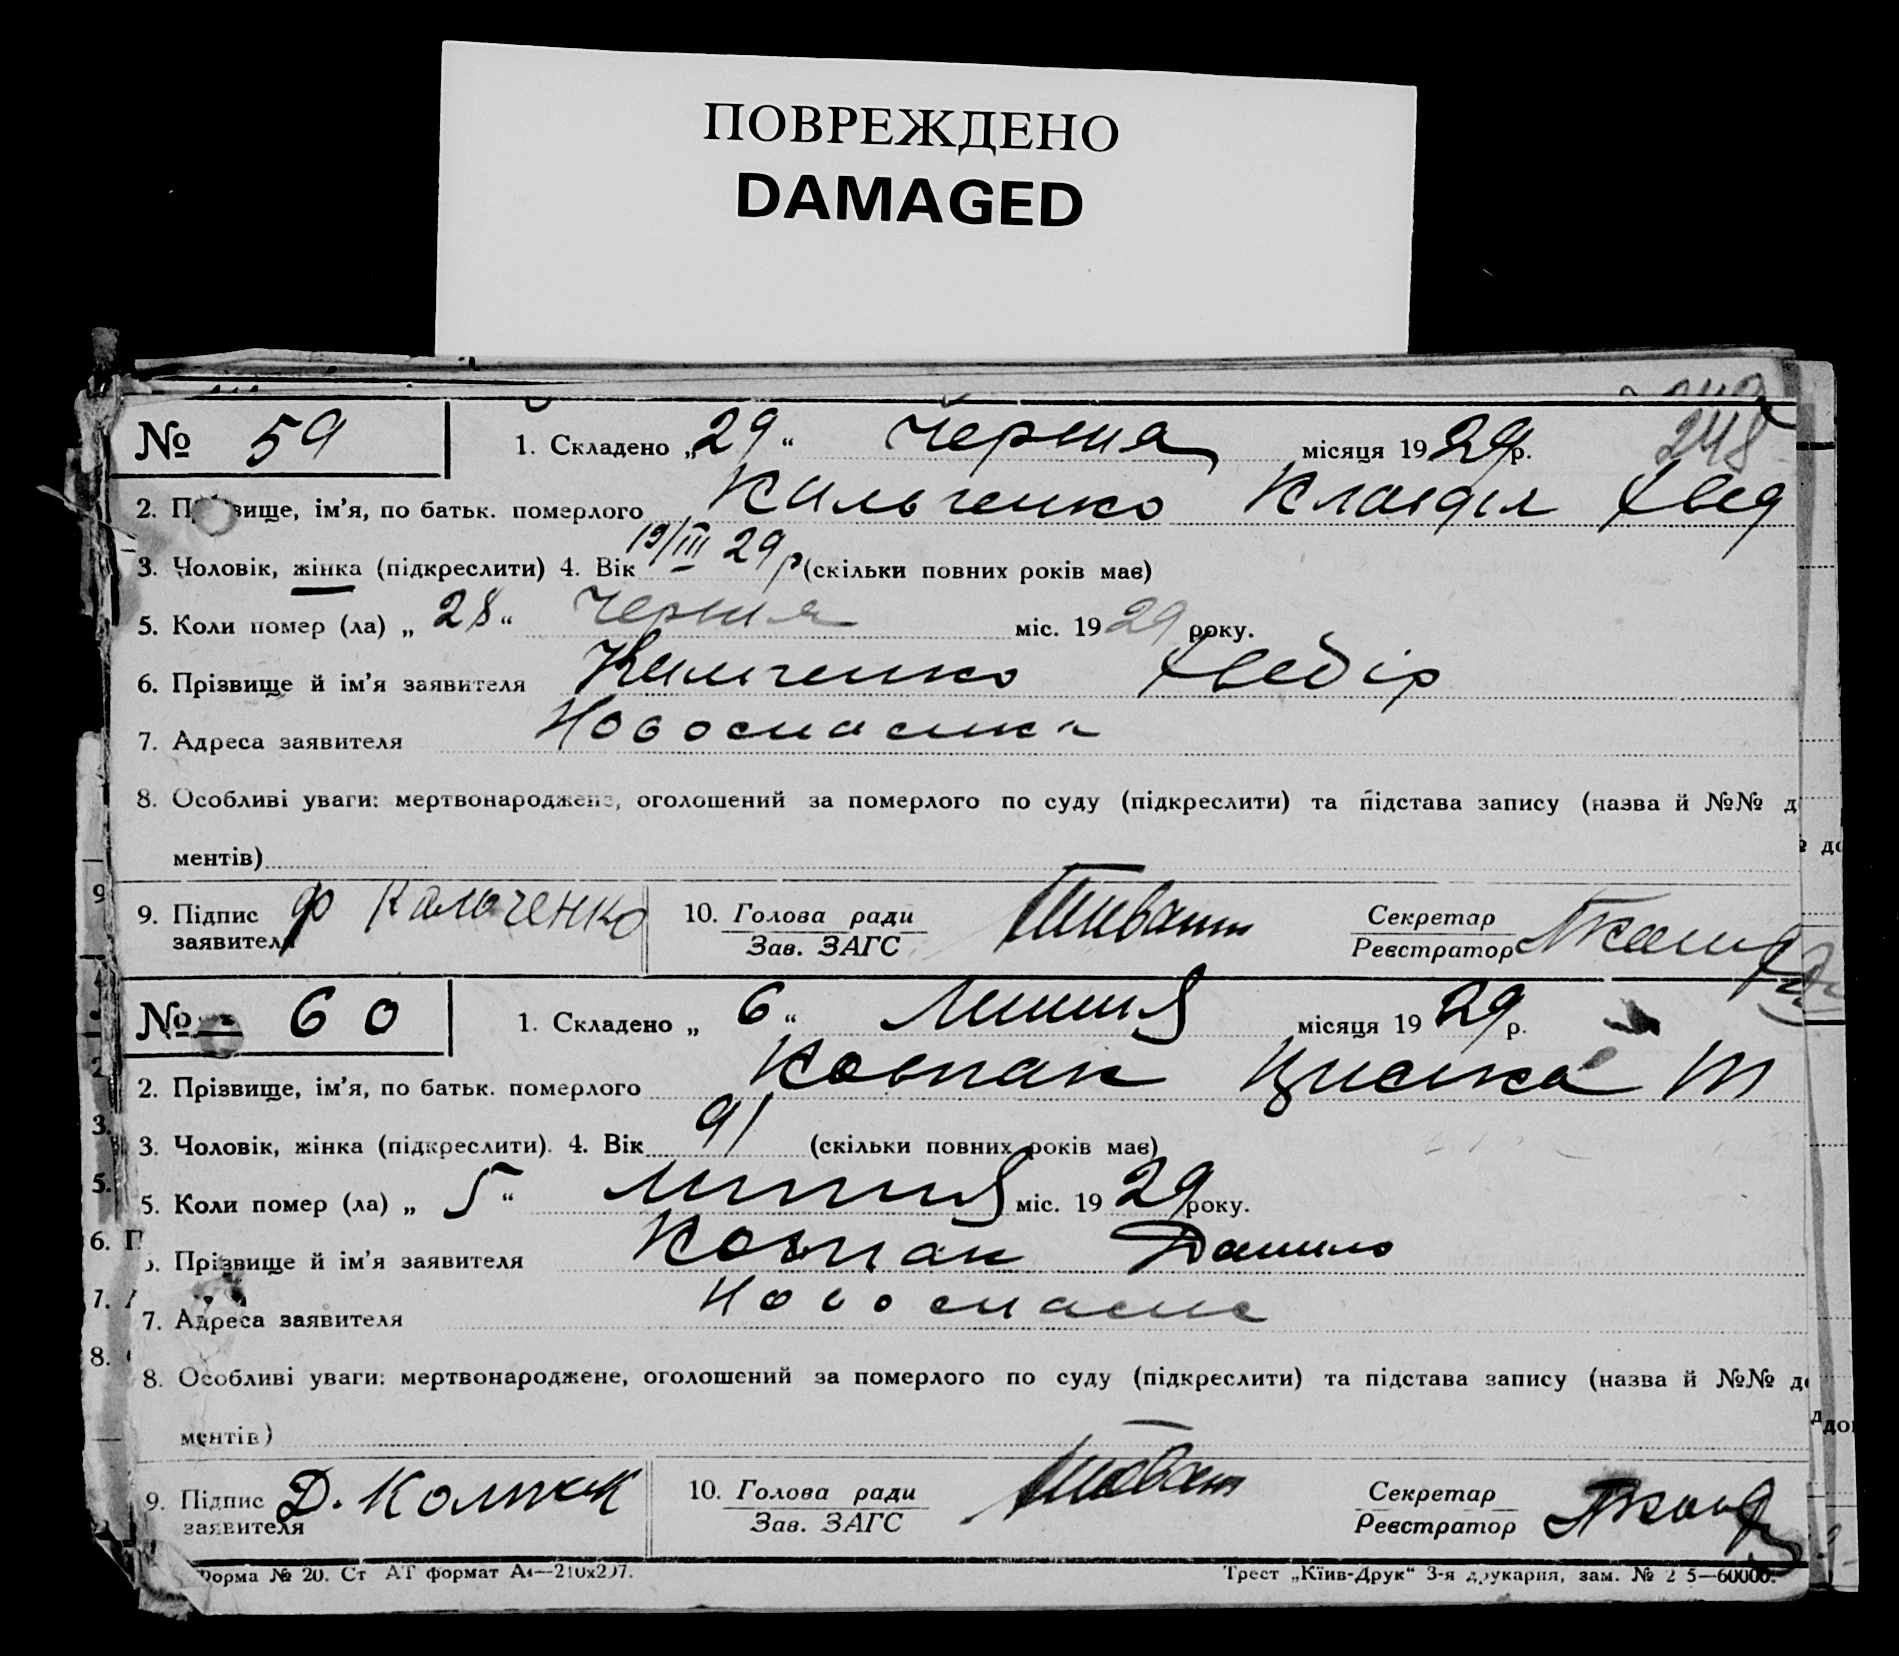 ПОВРЕЖДЕНО
DAMAGED
248
№ 59 1. Складено „29“ Червня місяця 1929 р.
2. Прізвище, ім'я, по батьк. померлого Кильченко Клавдія Хвед
3. Чоловік, жінка (підкреслити) 4. Вік 19/III 29 р (скільки повних років має)
5. Коли помер (ла) „28“ Червня міс. 1929 року.
6. Прізвище й ім'я заявителя Кильченко Хведір
7. Адреса заявителя Новоспаська
8. Особливі уваги: мертвонароджене, оголошений за померлого по суду (підкреслити) та підстава запису (назва й №№ д
ментів)
9. Підпис заявителя Ф Кальченко 10. Голова ради Зав. ЗАГС Секретар Реєстратор
№ 60 1. Складено „6“ Липня місяця 1929 р.
2. Прізвище, ім'я, по батьк. померлого Ковпак Т
3. Чоловік, жінка (підкреслити). 4. Вік 91 (скільки повних років має)
5. Коли помер (ла) „5“ Липня міс. 1929 року.
6. П
. Прізвище й ім'я заявителя Ковпак Данило
7. Адреса заявителя Новоспаське
8. Особливі уваги: мертвонароджене, оголошений за померлого по суду (підкреслити) та підстава запису (назва й №№ до
ментів)
9. Підпис заявителя Д. Колпак 10. Голова ради Зав. ЗАГС Секретар Реєстратор
Форма № 20. Ст АТ формат А4—210х297. Трест „Київ-Друк“ 3-я друкарня, зам. № 2 5—60000.